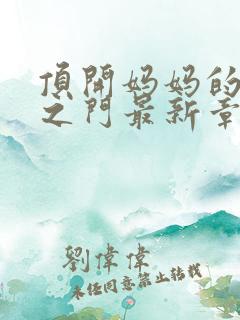 頂開妈妈的
之门最新章
劉偉偉
未经同意禁止转载